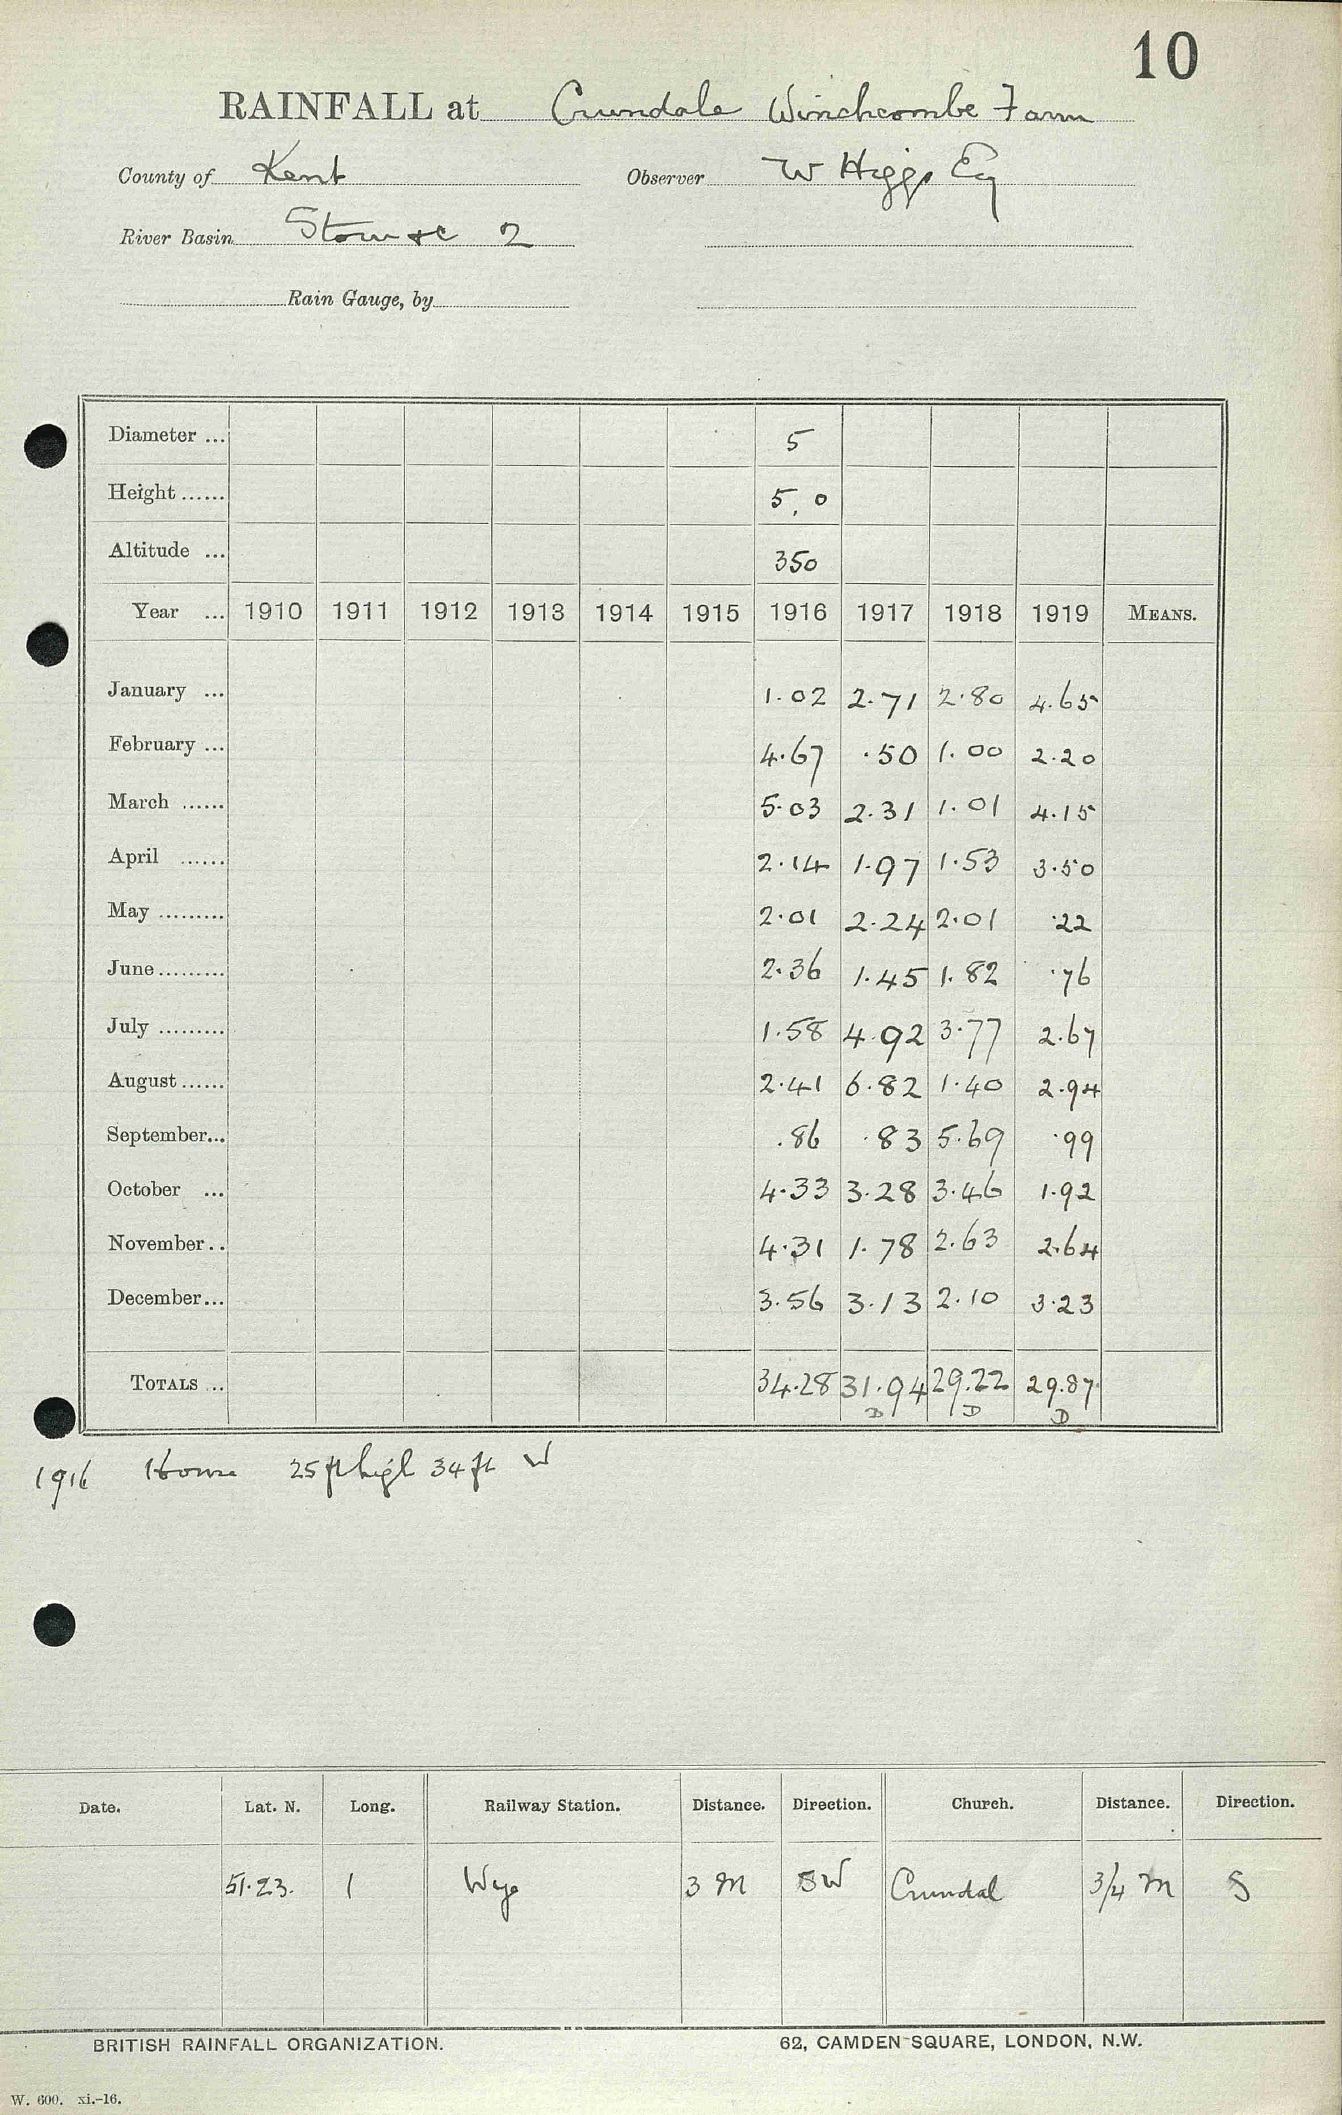 10
RAINFALL at Crundale Winchcombe Farm
County of Kent Observer W Higgs Esq
River Basin Stour &c 2
Rain Gauge, by
Diameter ... 5
Height ...... 5,0
Altitude ... 350
Year ... 1910 1911 1912 1913 1914 1915 1916 1917 1918 1919 MEANS.
January ... 1.02 2.71 2.80 4.65
February ... 4.67 .50 1.00 2.20
March ...... 5.03 2.31 1.01 4.15
April ...... 2.14 1.97 1.53 3.50
May ......... 2.01 2.24 2.01 .22
June ......... 2.36 1.45 1.82 .76
July ......... 1.58 4.92 3.77 2.67
August ...... 2.41 6.82 1.40 2.94
September... .86 .83 5.69 .99
October ... 4.33 3.28 3.46 1.92
November.. 4.31 1.78 2.63 2.64
December... 3.56 3.13 2.10 3.23
TOTALS ... 34.28 31.94 29.22 29.87
D D D
1916 House 25 ft high 34 ft W
Date. Lat. N. Long. Railway Station. Distance. Direction. Church. Distance. Direction.
51.23. 1 Wye 3 M SW Crundal 3/4 M S
BRITISH RAINFALL ORGANIZATION. 62, CAMDEN SQUARE, LONDON, N.W.
W. 600. xi.-16.